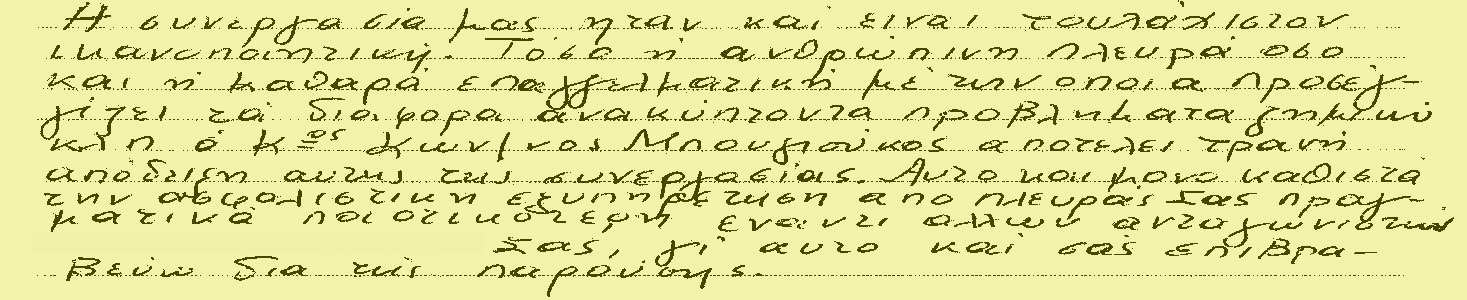 Η συνεργασία μας ηταν και ειναι τουλάχιστον
ικανοποιητική. Τόσο η ανθρώπινη πλευρά όσο
και ή καθαρά επαγγελματική μέ την οποια προσεγ-
γίζει τά διαφορα άνακύπτοντα προβλήματα ζημιών
κλπ ό Κος Κων/νος Μπουγιούκος αποτελει τρανή
απόδειξη αυτης της συνεργασίας. Αυτο και μονο καθιστά
την ασφαλιστικη εξυπηρέτηση απο πλευράς Σας πραγ-
ματικά ποιοτικότερη εναντι αλλων ανταγωνιστών
Σας, γι' αυτο και σάς επιβρα-
βευω δια της παρούσης.